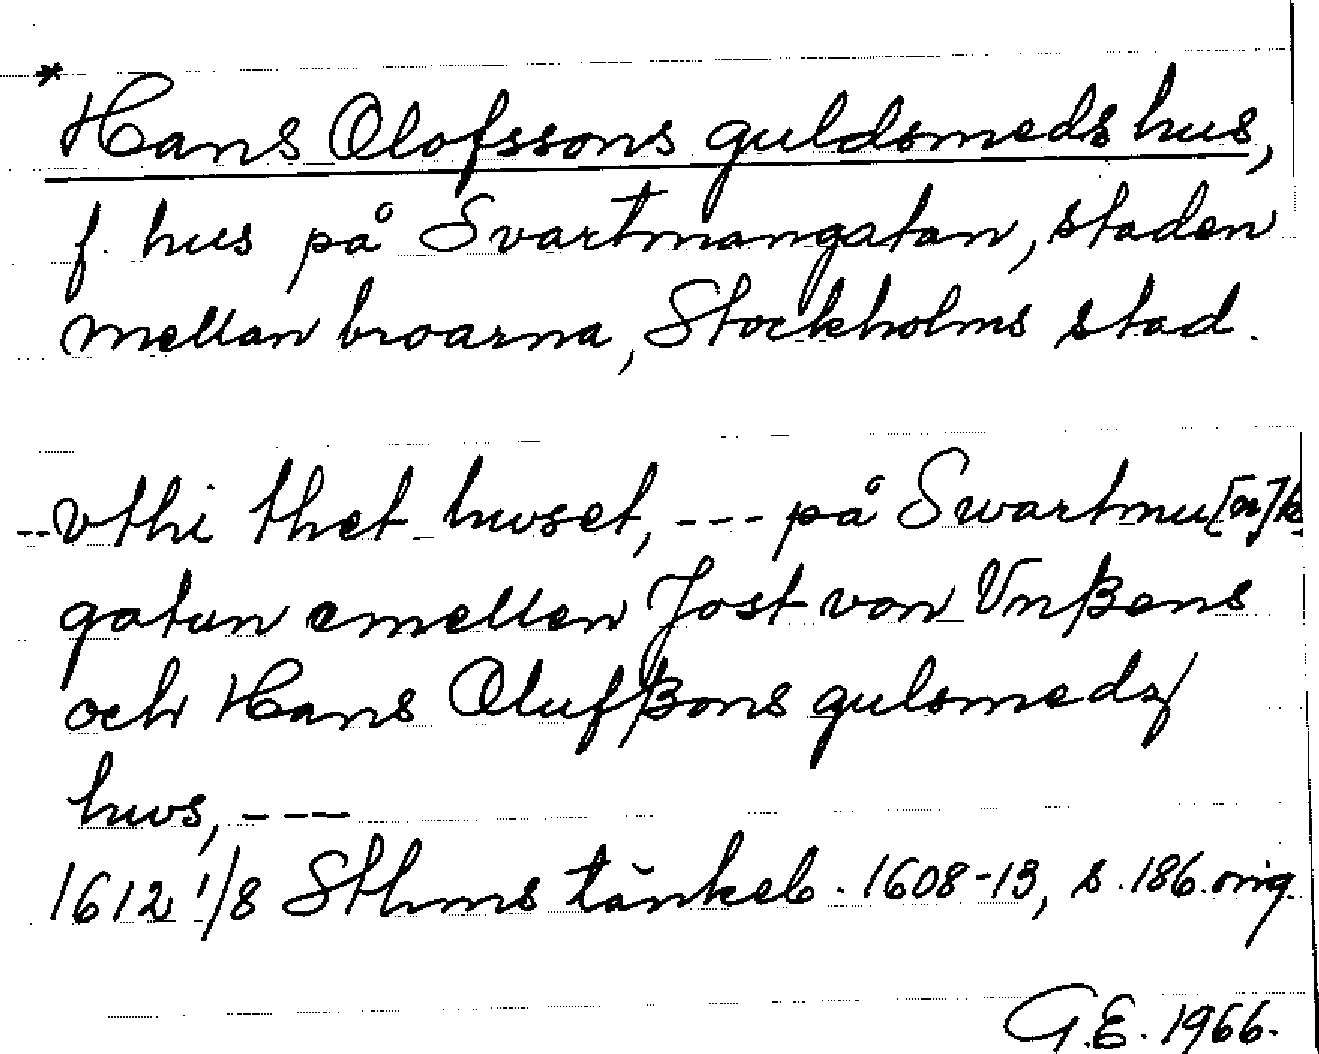 * Hans Olofssons guldsmeds hus,
f. hus på Svartmangatan, staden
mellan broarna, Stockholms stad.
--vthi thet hwset, --- på Swartmu[n]k
gatun emellen Jost von Vnßens
och Hans Olufßons gulsmedz
hws, ---
1612 1/8 Sthms tänkeb. 1608-13, s. 186. orig.
G.E. 1966.